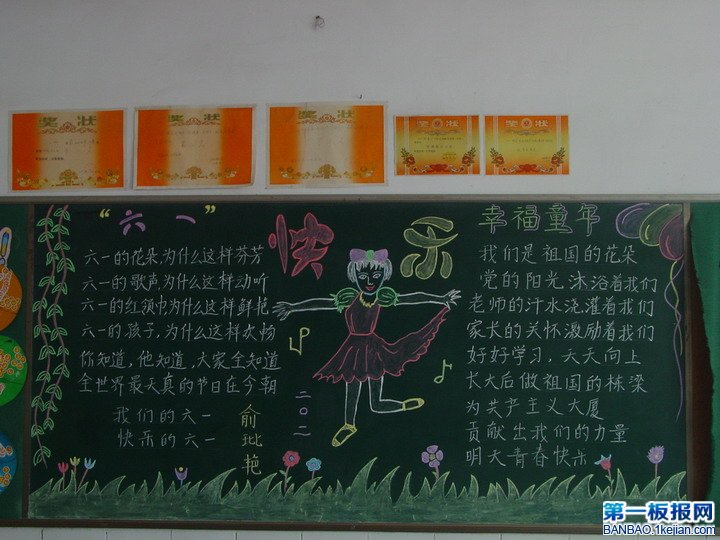 奖状
奖状
奖状
奖状
奖状
“六一”
快乐
六一的花朵,为什么这样芬芳
六一的歌声,为什么这样动听
六一的红领巾,为什么这样鲜艳
六一的孩子,为什么这样欢畅
你知道,他知道,大家全知道
全世界最天真的节日在今朝
我们的六一
快乐的六一
俞
艳
二〇二
幸福童年
我们是祖国的花朵
党的阳光沐浴着我们
老师的汗水浇灌着我们
家长的关怀激励着我们
好好学习,天天向上
长大后做祖国的栋梁
为共产主义大厦
贡献出我们的力量
明天青春快乐
第一板报网
BANBAO.1kejian.com